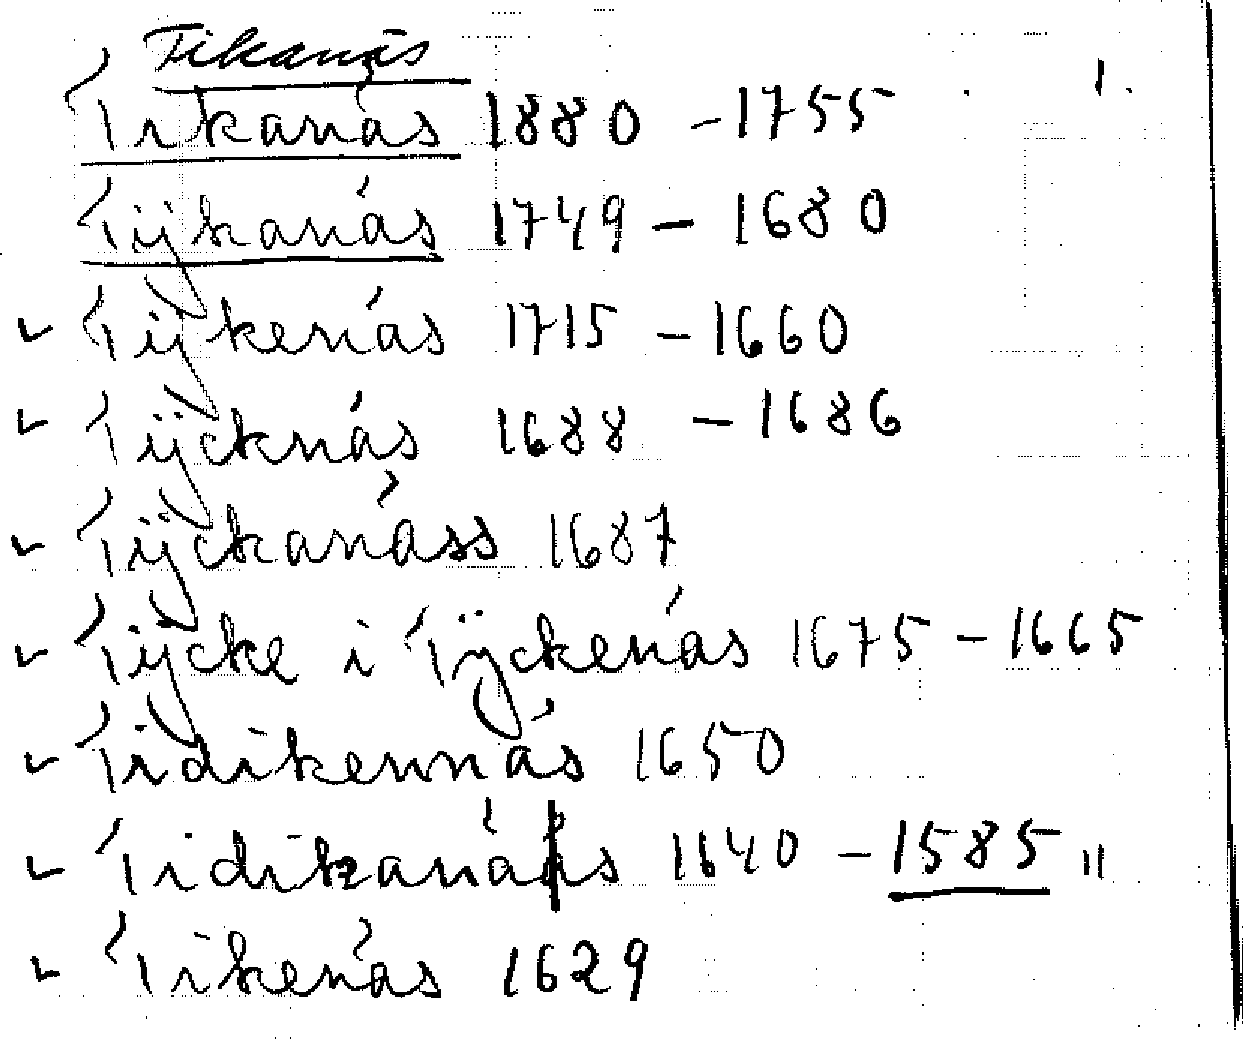 Tikanäs 1.
Tikanäs 1880 - 1755
Tijkanäs 1749 - 1680
Tijkenäs 1715 - 1660
Tijcknäs 1688 - 1686
Tijckanäss 1687
Tijcke i Tijckenäs 1675 - 1665
Tidikennäs 1650
Tidikanäs 1640 - 1585 "
Tikenäs 1629